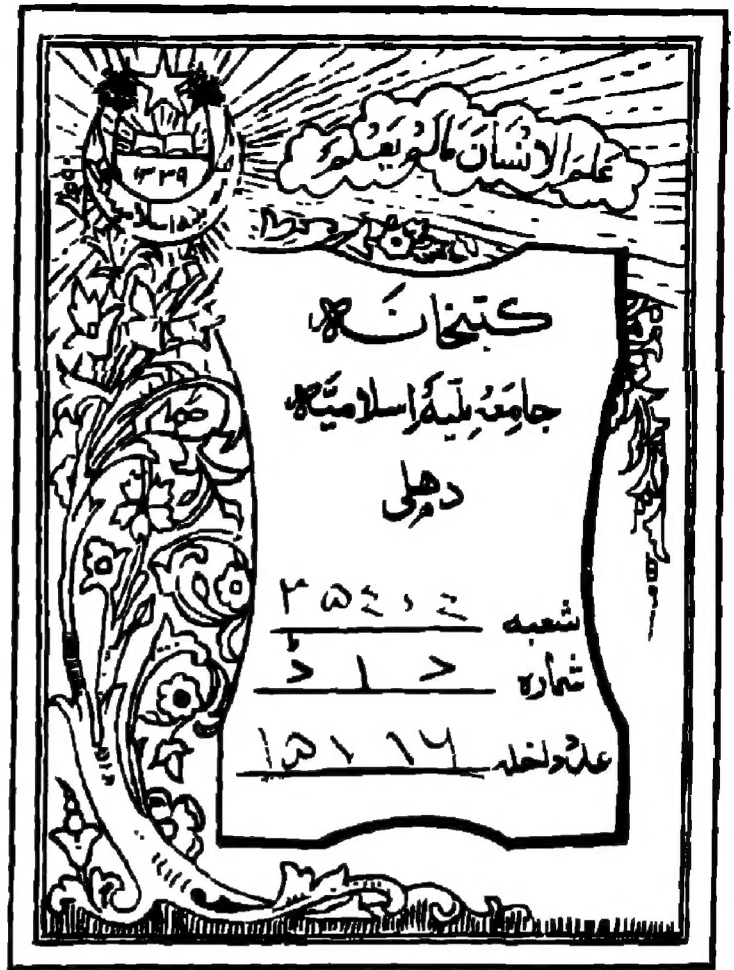 عَلَّمَ الْاِنْسَانَ مَالَمْ يَعْلَمْ
۱۳۳۹
کتبخانہ
جامعہ ملیہ اسلامیہ
دہلی
شعبہ
شمارہ د ا ڈ
عدد داخلہ ۱۵۱۱۶